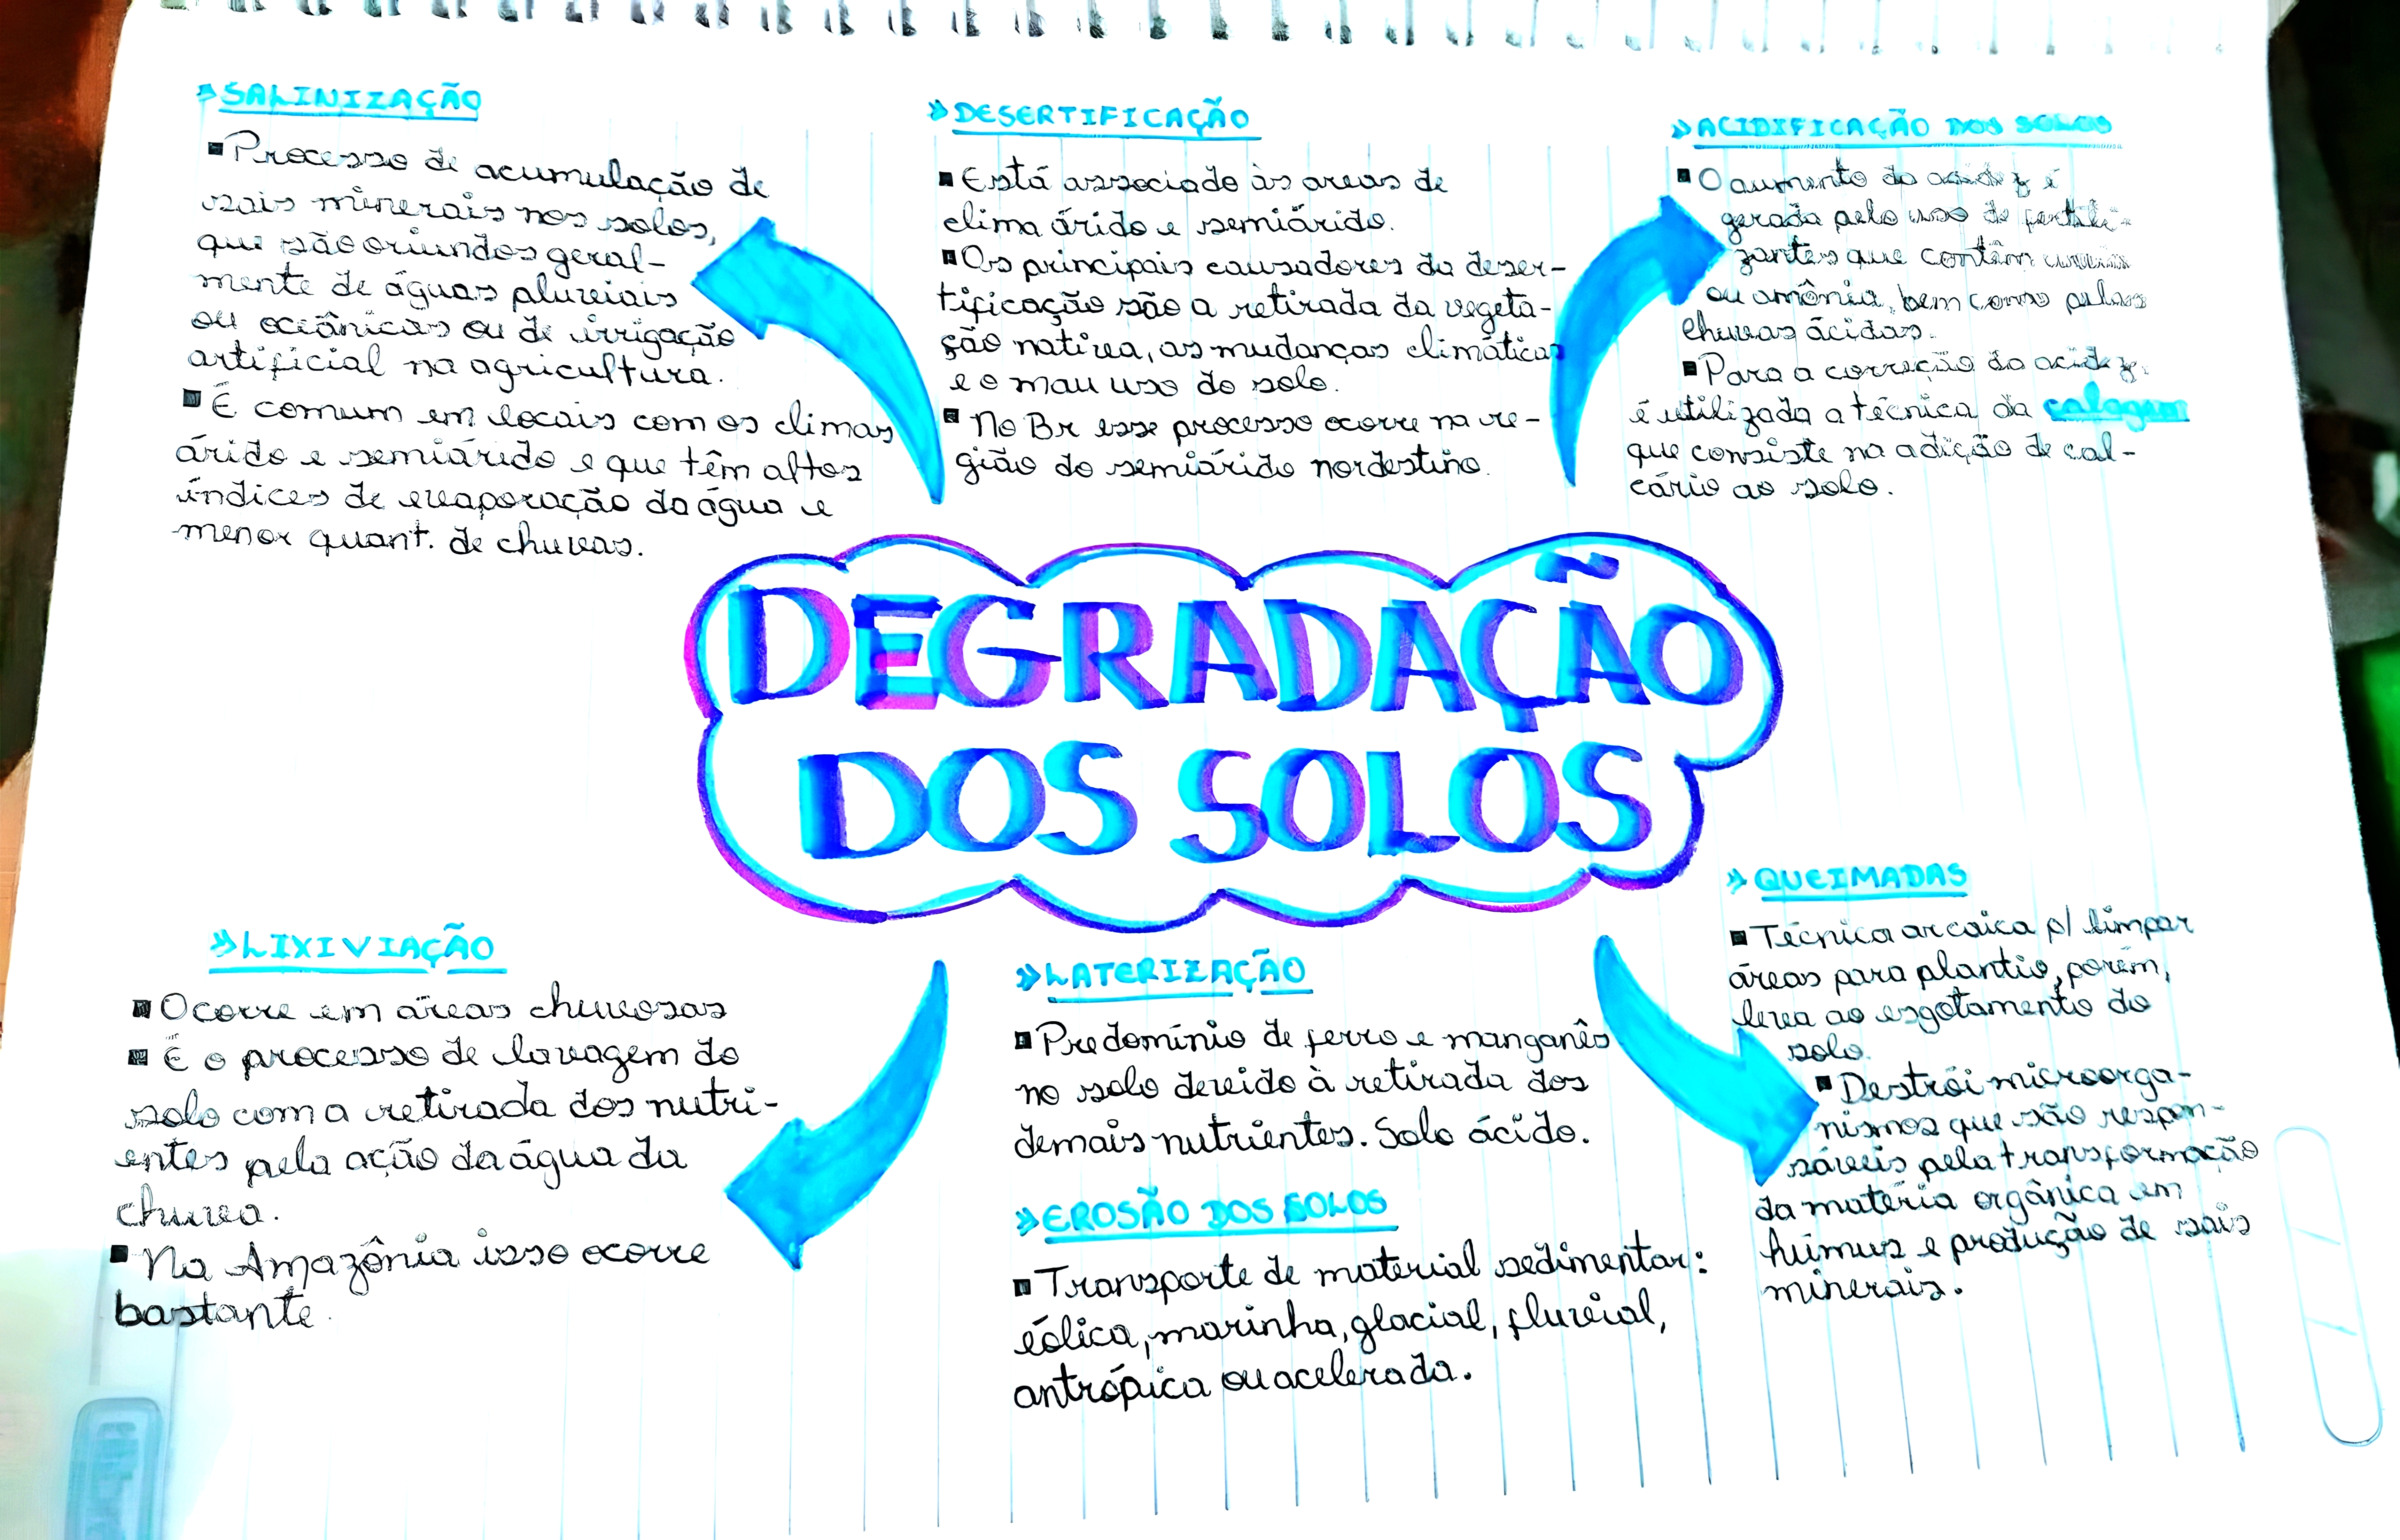 » SALINIZAÇÃO
▪ Processo de acumulação de
sais minerais nos solos,
que são oriundos geral-
mente de águas pluviais
ou oceânicas ou de irrigação
artificial na agricultura.
▪ É comum em locais com os climas
árido e semiárido e que têm altos
índices de evaporação da água e
menor quant. de chuvas.
» DESERTIFICAÇÃO
▪ Está associado às areas de
clima árido e semiárido.
▪ Os principais causadores da deser-
tificação são a retirada da vegeta-
ção nativa, as mudanças climáticas
e o mau uso do solo.
▪ No Br esse processo ocorre na re-
gião do semiárido nordestino.
» ACIDIFICAÇÃO DOS SOLOS
▪ O aumento da acidez é
gerada pelo uso de fertili-
zantes que contêm ureia
ou amônia, bem como pelas
chuvas ácidas.
▪ Para a correção da acidez,
é utilizada a técnica da calagem
que consiste na adição de cal-
cário ao solo.
DEGRADAÇÃO
DOS SOLOS
» LIXIVIAÇÃO
▪ Ocorre em áreas chuvosas
▪ É o processo de lavagem do
solo com a retirada dos nutri-
entes pela ação da água da
chuva.
▪ Na Amazônia isso ocorre
bastante.
» LATERIZAÇÃO
▪ Predomínio de ferro e manganês
no solo devido à retirada dos
demais nutrientes. Solo ácido.
» EROSÃO DOS SOLOS
▪ Transporte de material sedimentar:
eólica, marinha, glacial, fluvial,
antrópica ou acelerada.
» QUEIMADAS
▪ Técnica arcaica p/ limpar
áreas para plantio, porém,
leva ao esgotamento do
solo.
▪ Destrói microorga-
nismos que são respon-
sáveis pela transformação
da matéria orgânica em
húmus e produção de sais
minerais.